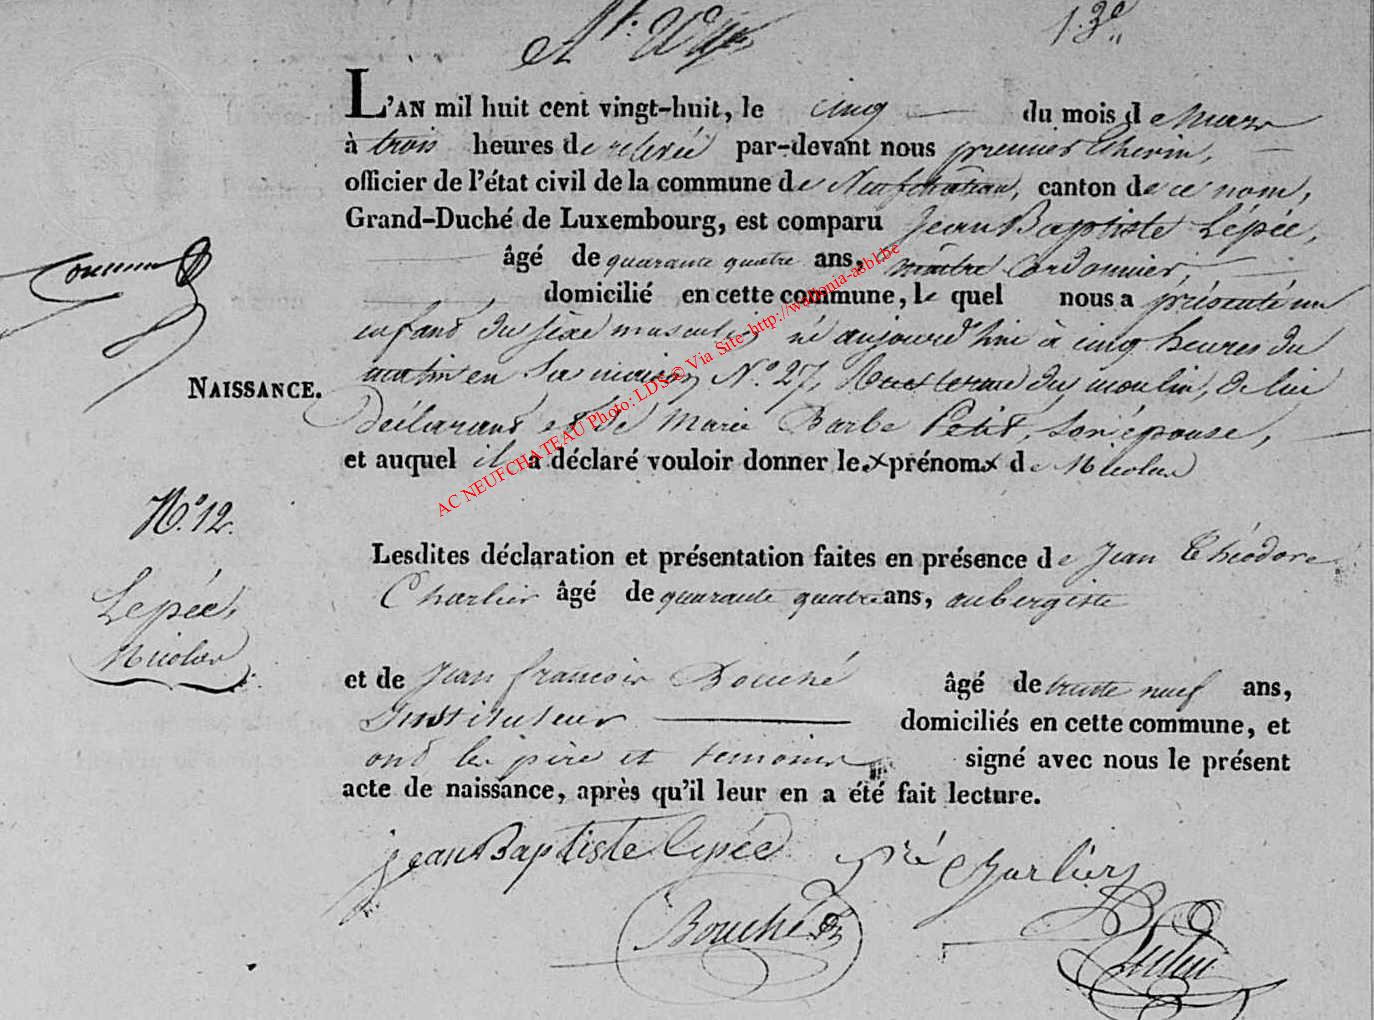 13e
L'AN mil huit cent vingt-huit, le cinq du mois de Mars
à trois heures de relevée par-devant nous premier Echevin,
officier de l'état civil de la commune de Neufchâteau, canton de ce nom,
Grand-Duché de Luxembourg, est comparu Jean Baptiste Lépée,
âgé de quarante quatre ans, maître Cordonnier,
domicilié en cette commune, le quel nous a présenté un
enfant du sexe masculin, né aujourd'hui à cinq heures du
matin en sa maison N.° 27, du moulin, de lui
déclarant et de Marie Barbe Petit, son épouse,
et auquel il a déclaré vouloir donner le prénom de Nicolas
NAISSANCE.
N.° 12.
Lepée,
Nicolas
Lesdites déclaration et présentation faites en présence de Jean Théodore
Charlier âgé de quarante quatre ans, aubergiste
et de Jean françois Bouché âgé de trente neuf ans,
Instituteur domiciliés en cette commune, et
ont les père et témoins signé avec nous le présent
acte de naissance, après qu'il leur en a été fait lecture.
jean Baptiste lepée Charlier
Bouché
AC NEUFCHATEAU Photo: LDS © Via Site http://wallonia-asbl.be